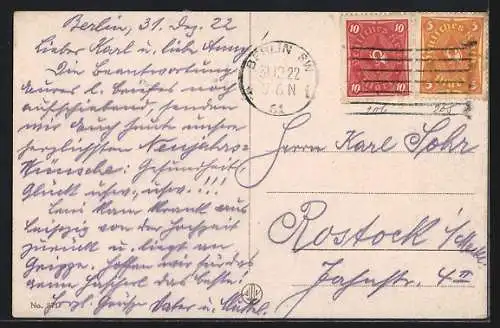 Berlin, 31. Dez. 22
Lieber Karl u. liebe Anny!
Die Beantwortung
Eures l. Briefes noch
aufschiebend, senden
wir Euch heute unsre
herzlichsten Neujahrs-
Wünsche: Gesundheit,
Glück usw., usw. !!!
kam krank aus
Leipzig von der Hochzeit
zurück u. liegt an
Grippe. Hoffen wir für das
arme das beste!
Herzl. Grüße Vater u.
No. 370
BERLIN SW
31.12.22
7-8 N
61
10 10
Deutsches Reich
10 Mark 10
5 5
Deutsches Reich
5 Mark 5
Herrn Karl Sohr
Rostock i/Meckl.
Jahnstr. 4 II